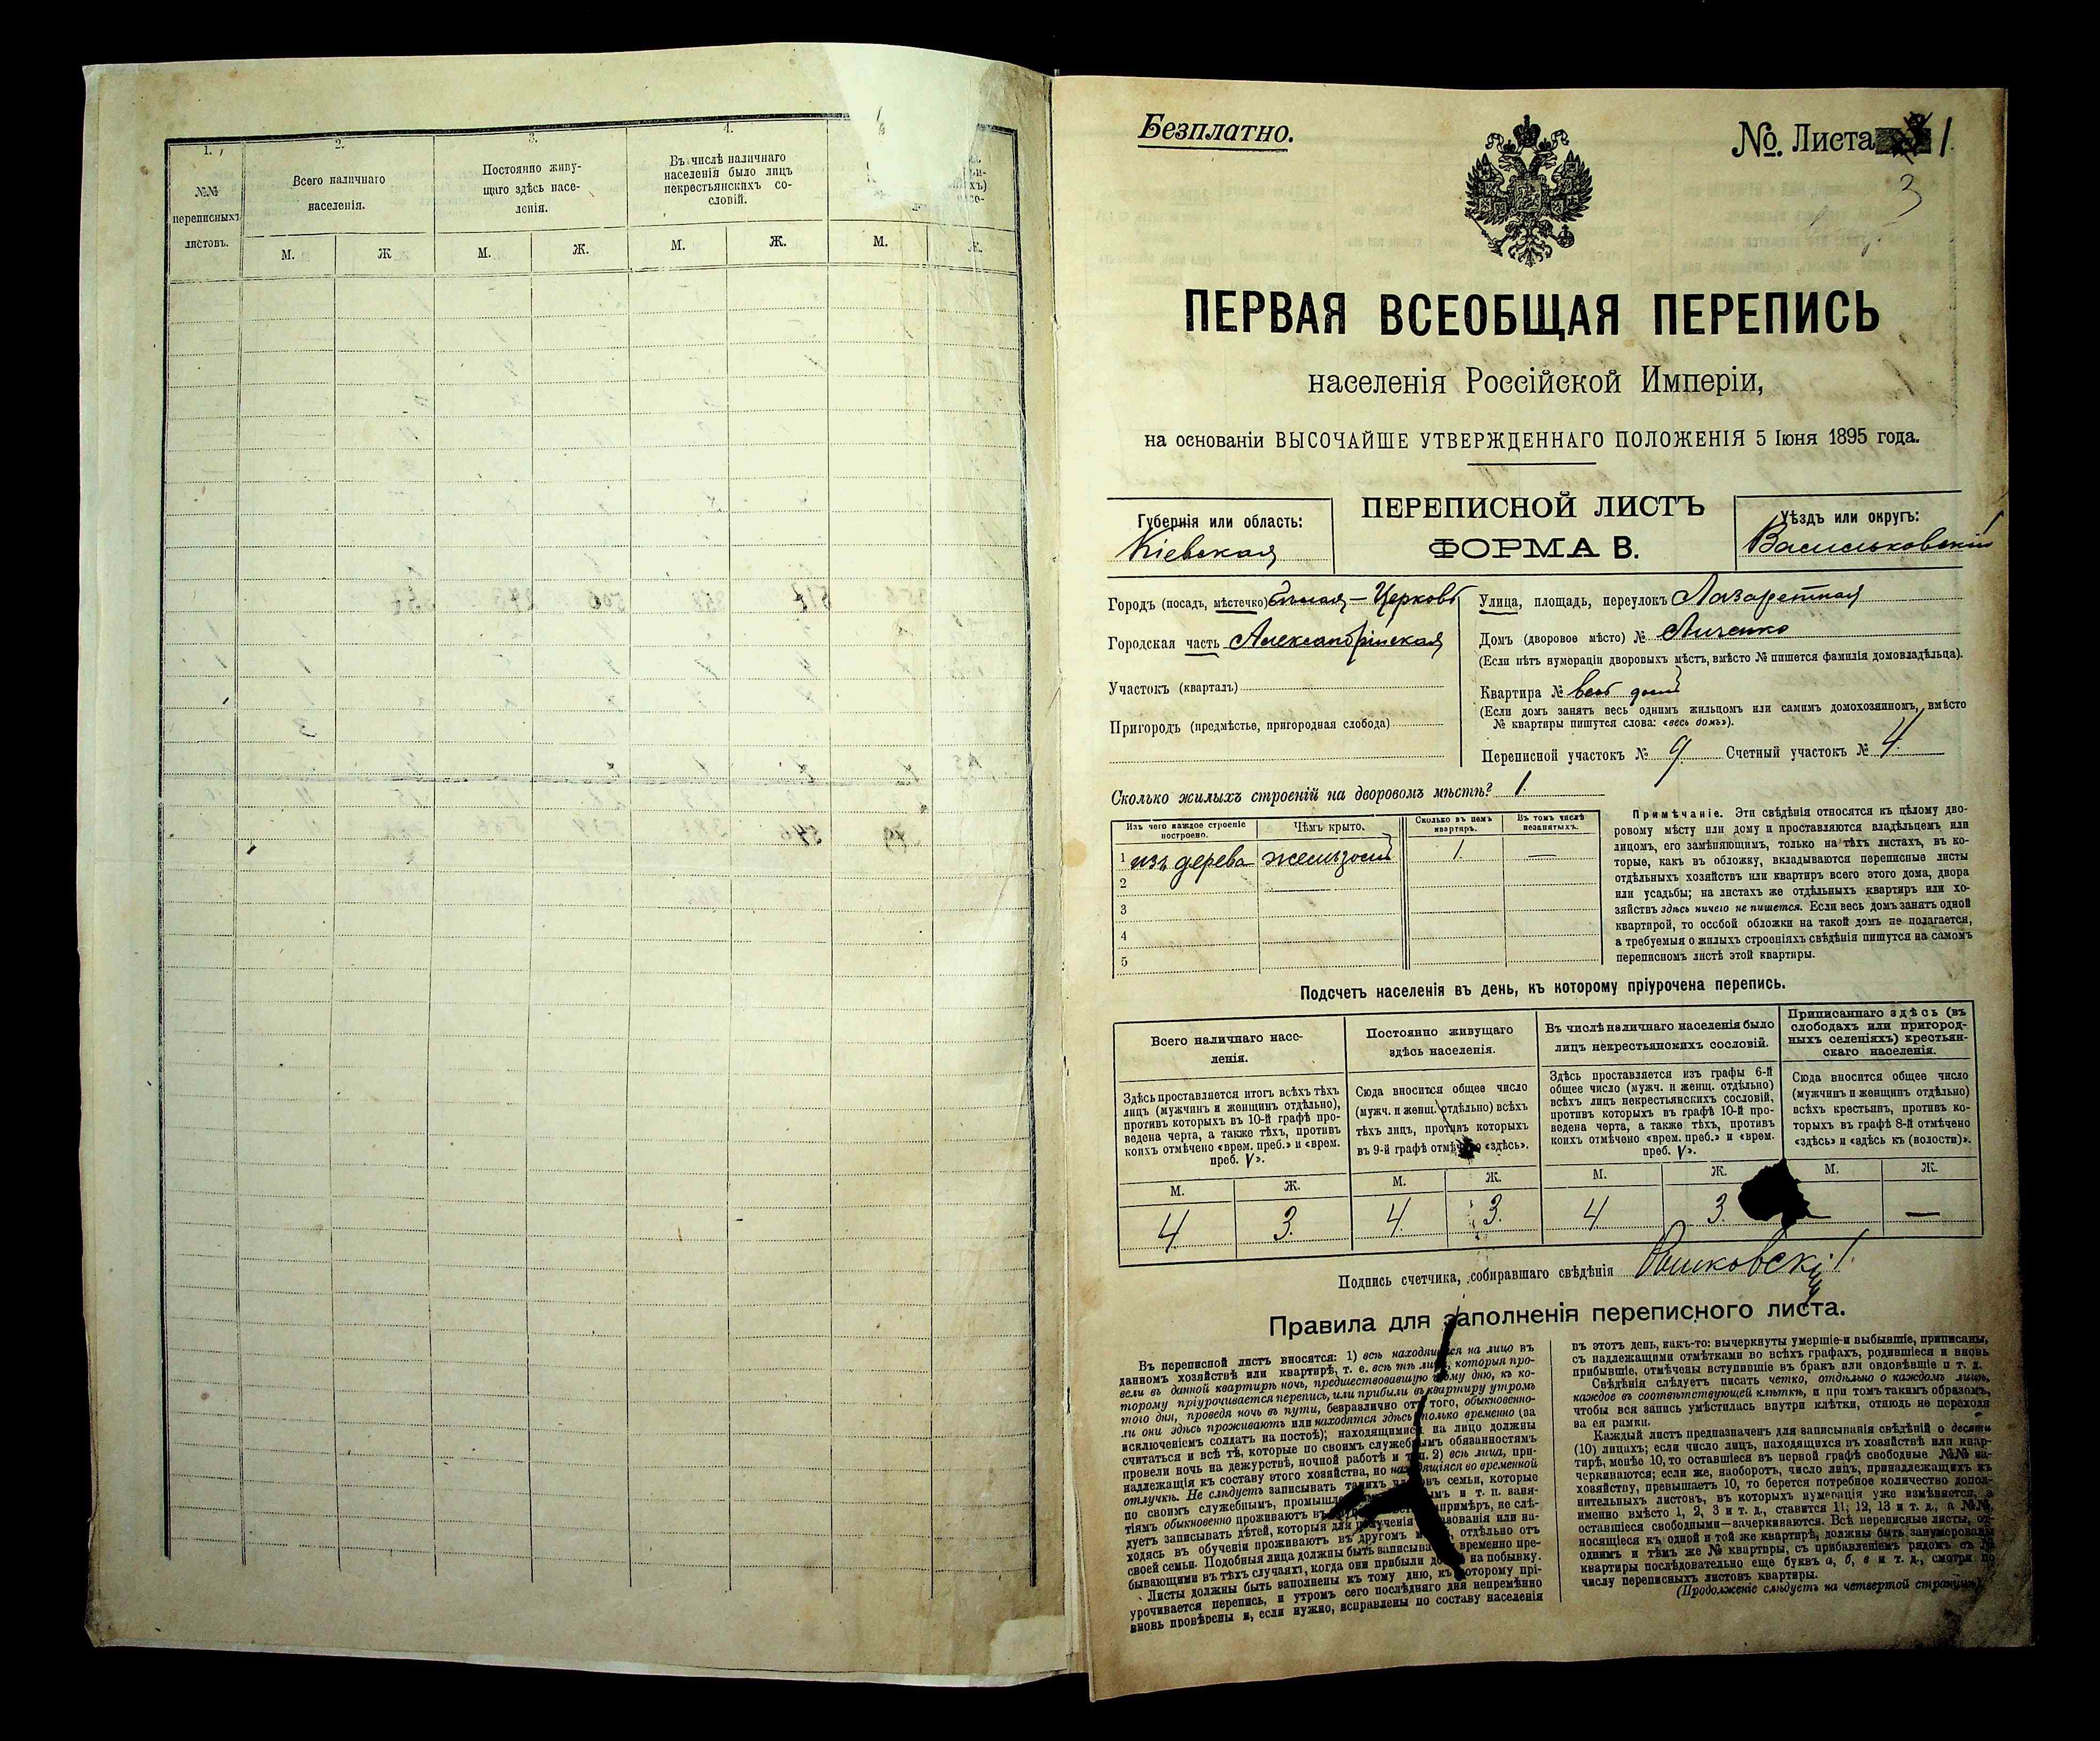 1.
2.
3.
4.
№№
переписныхъ
листовъ.
Всего наличнаго
населенія.
Постоянно живу-
щаго здѣсь насе-
ленія.
Въ числѣ наличнаго
населенія было лицъ
некрестьянскихъ со-
словій.
М.
Ж
М.
Ж.
М.
Ж.
М.
Ж.
Безплатно.
№. Листа 1.
3
ПЕРВАЯ ВСЕОБЩАЯ ПЕРЕПИСЬ
населенія Россійской Имперіи,
на основаніи ВЫСОЧАЙШЕ УТВЕРЖДЕННАГО ПОЛОЖЕНІЯ 5 Іюня 1895 года.
Губернія или область:
Кіевская
ПЕРЕПИСНОЙ ЛИСТЪ
ФОРМА В.
Уѣздъ или округъ:
Васильковскій
Городъ (посадъ, мѣстечко) Бѣлая-Церковь
Городская часть Александрійская
Участокъ (кварталъ)
Пригородъ (предмѣстье, пригородная слобода)
Улица, площадь, переулокъ Лазаретная
Домъ (дворовое мѣсто) №
(Если нѣтъ нумераціи дворовыхъ мѣстъ, вмѣсто № пишется фамилія домовладѣльца).
Квартира № весь домъ
(Если домъ занятъ весь однимъ жильцомъ или самимъ домохозяиномъ, вмѣсто
№ квартиры пишутся слова: «весь домъ»).
Переписной участокъ № 9. Счетный участокъ № 4.
Сколько жилыхъ строеній на дворовомъ мѣстѣ? 1.
Изъ чего каждое строеніе
построено.
Чѣмъ крыто.
Сколько въ немъ
квартиръ.
Въ томъ числѣ
незанятыхъ.
1 изъ дерева желѣзомъ 1. —
2
3
4
5
Примѣчаніе. Эти свѣдѣнія относятся къ цѣлому дво-
ровому мѣсту или дому и проставляются владѣльцемъ или
лицомъ, его замѣняющимъ, только на тѣхъ листахъ, въ ко-
торые, какъ въ обложку, вкладываются переписные листы
отдѣльныхъ хозяйствъ или квартиръ всего этого дома, двора
или усадьбы; на листахъ же отдѣльныхъ квартиръ или хо-
зяйствъ здѣсь ничего не пишется. Если весь домъ занятъ одной
квартирой, то особой обложки на такой домъ не полагается,
а требуемыя о жилыхъ строеніяхъ свѣдѣнія пишутся на самомъ
переписномъ листѣ этой квартиры.
Подсчетъ населенія въ день, къ которому пріурочена перепись.
Всего наличнаго насе-
ленія.
Постоянно живущаго
здѣсь населенія.
Въ числѣ наличнаго населенія было
лицъ некрестьянскихъ сословій.
Приписаннаго здѣсь (въ
слободахъ или пригород-
ныхъ селеніяхъ) крестьян-
скаго населенія.
Здѣсь проставляется итогъ всѣхъ тѣхъ
лицъ (мужчинъ и женщинъ отдѣльно),
противъ которыхъ въ 10-й графѣ про-
ведена черта, а также тѣхъ, противъ
коихъ отмѣчено «врем. преб.» и «врем.
преб. V».
Сюда вносится общее число
(мужч. и женщ. отдѣльно) всѣхъ
тѣхъ лицъ, противъ которыхъ
въ 9-й графѣ «здѣсь».
Здѣсь проставляется изъ графы 6-й
общее число (мужч. и женщ. отдѣльно)
всѣхъ лицъ некрестьянскихъ сословій,
противъ которыхъ въ графѣ 10-й про-
ведена черта, а также тѣхъ, противъ
коихъ отмѣчено «врем. преб.» и «врем.
преб. V».
Сюда вносится общее число
(мужчинъ и женщинъ отдѣльно)
всѣхъ крестьянъ, противъ ко-
торыхъ въ графѣ 8-й отмѣчено
«здѣсь» и «здѣсь къ (волости)».
М. Ж. М. Ж. М. Ж. М. Ж.
4. 3. 4. 3. 4. 3. — —
Подпись счетчика, собиравшаго свѣдѣнія
Правила для заполненія переписного листа.
Въ переписной листъ вносятся: 1) всѣ на лицо въ
данномъ хозяйствѣ или квартирѣ, т. е. всѣ тѣ лица, которыя про-
вели въ данной квартирѣ ночь, предшествовавшую тому дню, къ ко-
торому пріурочивается перепись, или прибыли въ квартиру утромъ
того дня, проведя ночь въ пути, безразлично отъ того, обыкновенно-
ли они здѣсь проживаютъ или находятся здѣсь только временно (за
исключеніемъ солдатъ на постоѣ); находящимися на лицо должны
считаться и всѣ тѣ, которые по своимъ служебнымъ обязанностямъ
провели ночь на дежурствѣ, ночной работѣ и т. п. 2) всѣ лица, при-
надлежащія къ составу этого хозяйства, но находящіяся во временной
отлучкѣ. Не слѣдуетъ записывать такихъ членовъ семьи, которые
по своимъ служебнымъ, и т. п. заня-
тіямъ обыкновенно проживаютъ въ напримѣръ, не слѣ-
дуетъ записывать дѣтей, которыя для полученія или на-
ходясь въ обученіи проживаютъ въ другомъ отдѣльно отъ
своей семьи. Подобныя лица должны быть временно пре-
бывающими въ тѣхъ случаяхъ, когда они прибыли на побывку.
Листы должны быть заполнены къ тому дню, къ которому прі-
урочивается перепись, и утромъ сего послѣдняго дня непремѣнно
вновь провѣрены и, если нужно, исправлены по составу населенія
въ этотъ день, какъ-то: вычеркнуты умершіе и выбывшіе, приписаны,
съ надлежащими отмѣтками во всѣхъ графахъ, родившіеся и вновь
прибывшіе, отмѣчены вступившіе въ бракъ или овдовѣвшіе и т. д.
Свѣдѣнія слѣдуетъ писать четко, отдѣльно о каждомъ лицѣ,
каждое въ соотвѣтствующей клѣткѣ, и при томъ такимъ образомъ,
чтобы вся запись умѣстилась внутри клѣтки, отнюдь не переходя
за ея рамки.
Каждый листъ предназначенъ для записыванія свѣдѣній о десяти
(10) лицахъ; если число лицъ, находящихся въ хозяйствѣ или квар-
тирѣ, менѣе 10, то оставшіеся въ первой графѣ свободные №№ за-
черкиваются; если же, наоборотъ, число лицъ, принадлежащихъ къ
хозяйству, превышаетъ 10, то берется потребное количество допол-
нительныхъ листовъ, въ которыхъ нумерація уже измѣняется, а
именно вмѣсто 1, 2, 3 и т. д., ставится 11, 12, 13 и т. д., а №№,
оставшіеся свободными—зачеркиваются. Всѣ переписные листы, от-
носящіеся къ одной и той же квартирѣ, должны быть занумерованы
однимъ и тѣмъ же № квартиры, съ прибавленіемъ рядомъ съ №
квартиры послѣдовательно еще буквъ а, б, в и т. д., смотря по
числу переписныхъ листовъ квартиры.
(Продолженіе слѣдуетъ на четвертой страницѣ)